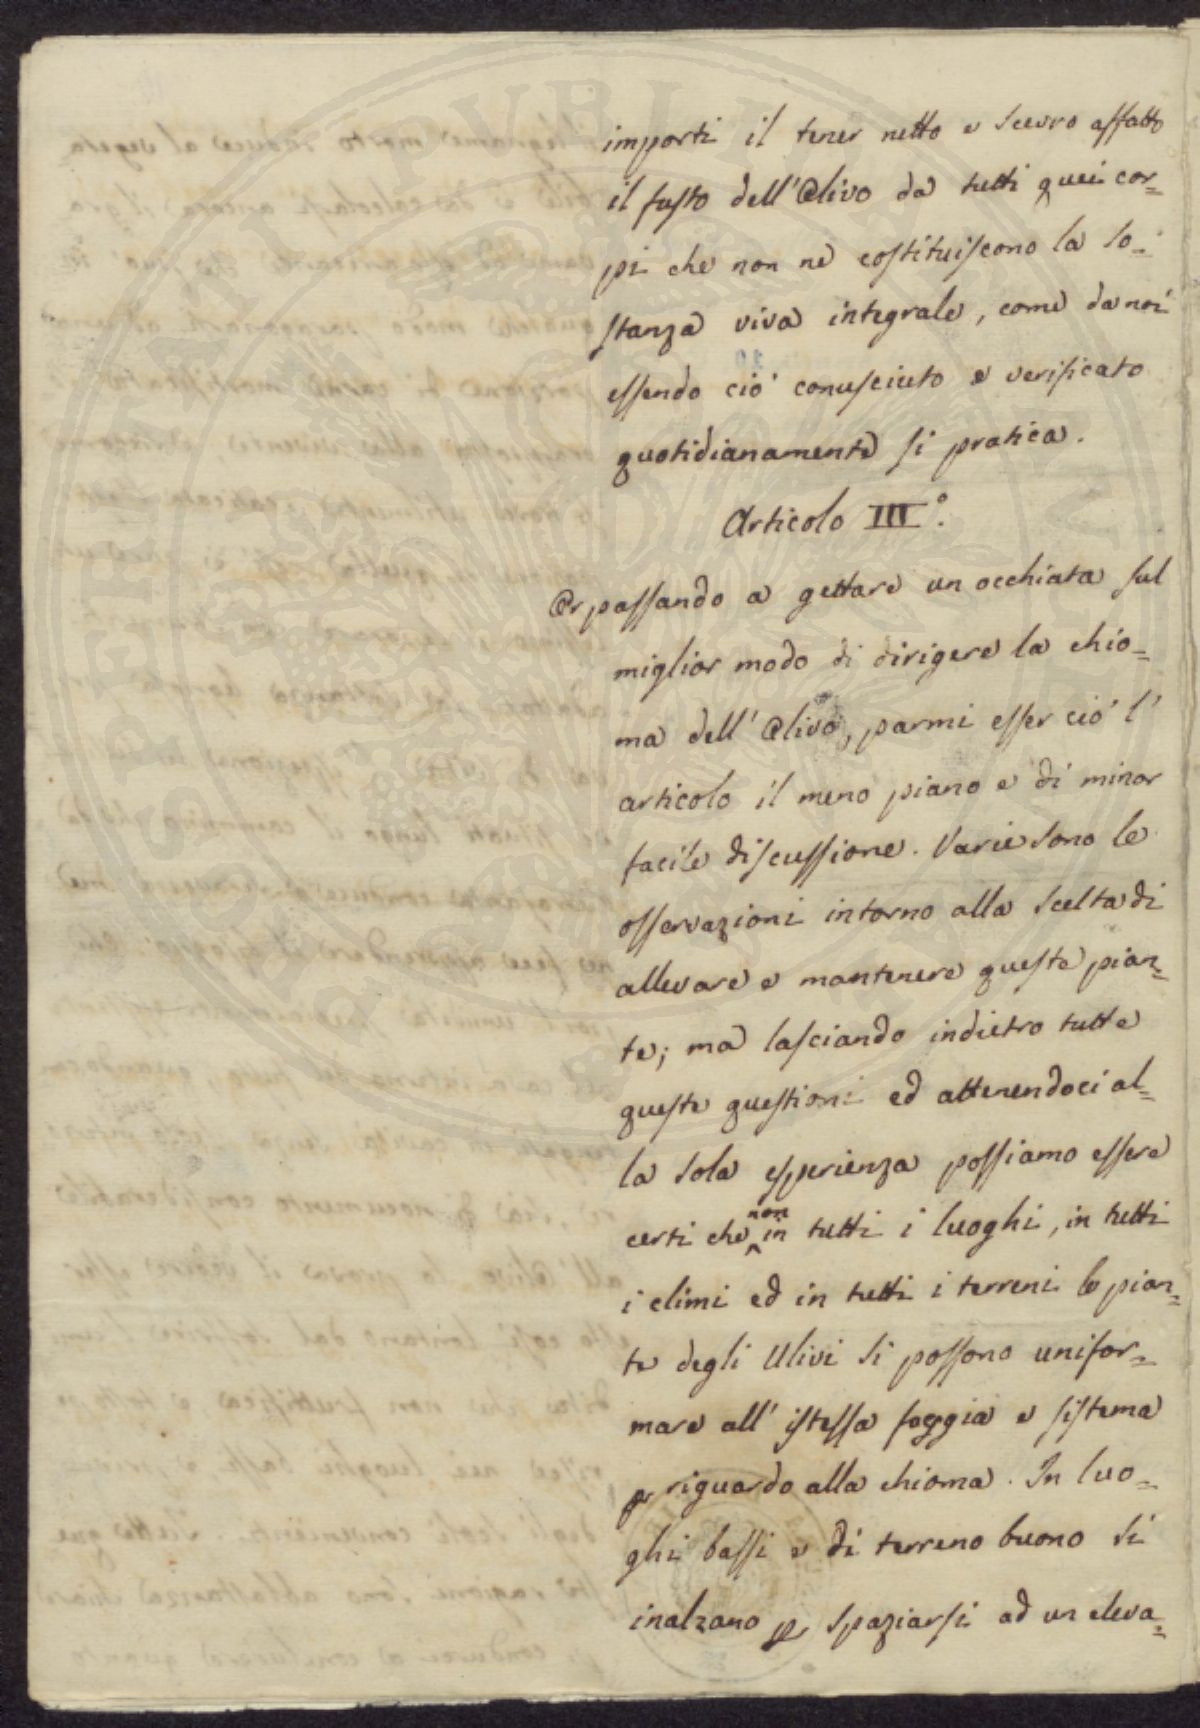 importi il tener netto e scevro affatto
il fusto dell'Olivo da tutti quei cor=
pi che non ne costituiscono la so=
stanza viva integrale, come da noi
essendo ciò conusciuto e verificato
quotidianamente si pratica.
Articolo III°.
Or passando a gettare un occhiata sul
miglior modo di dirigere la chio=
ma dell'Olivo, parmi esser ciò l'
articolo il meno piano e di minor
facile discussione. Varie sono le
osservazioni intorno alla scelta di
allevare e mantenere queste pian=
te; ma lasciando indietro tutte
queste questioni ed attenendoci al=
la sola esperienza possiamo essere
certi che non in tutti i luoghi, in tutti
i climi ed in tutti i terreni le pian=
te degli Ulivi si possono unifor=
mare all'istessa foggia e sistema
p riguardo alla chioma. In luo=
ghi bassi e di terreno buono si
inalzano p spaziarsi ad un eleva=